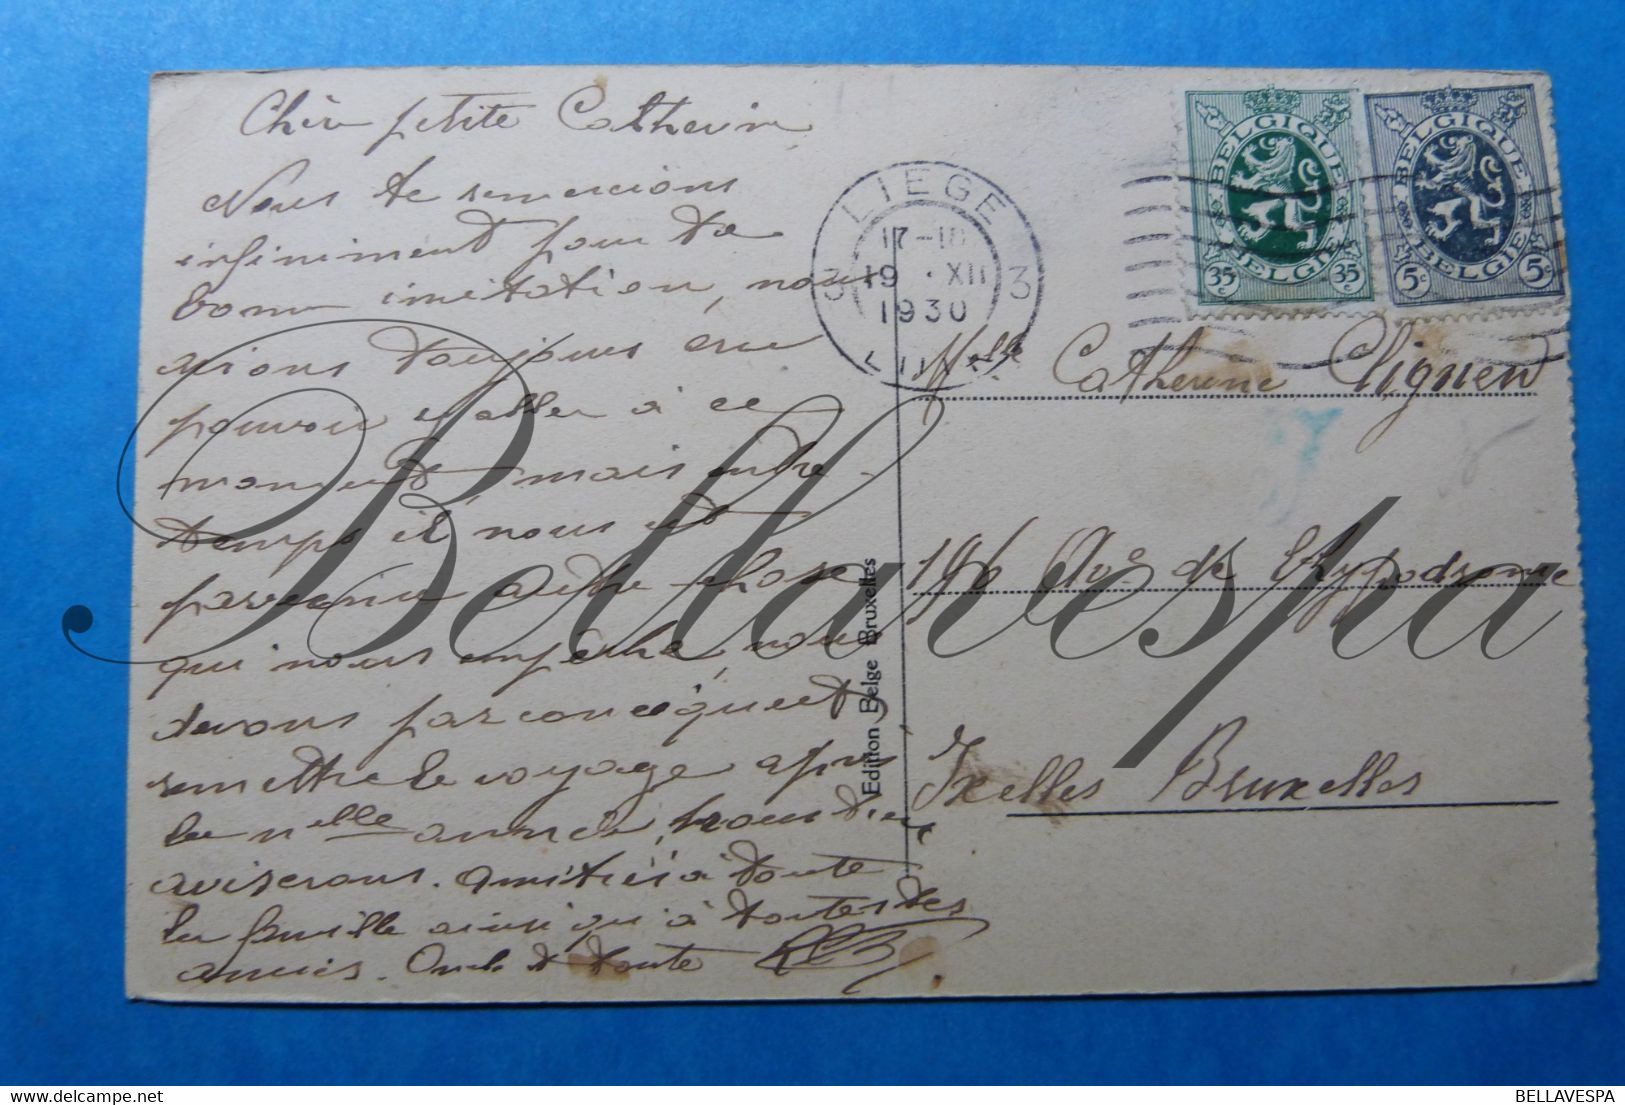 Chère petite Catherine
Nous te remercions
infiniment pour ta
bonne invitation, nous
avions toujours cru
pouvoir y aller à ce
moment, mais entre-
temps il nous est
parvenu autre chose
qui nous empêche, nous
devons par conséquent
remettre le voyage après
la nlle année, nous t'en
aviserons. Amitiés à toute
la famille ainsi qu'à toutes tes
amies. Oncle & tante
LIEGE
3 3
17-18
19 XII
1930
BELGIQUE
BELGIE
35c 35c
BELGIQUE
BELGIE
5c 5c
Mlle Catherine Clignen
196 Ave de l'Hyppodrome
Ixelles Bruxelles
Edition Belge Bruxelles
Bellavespa
BELLAVESPA